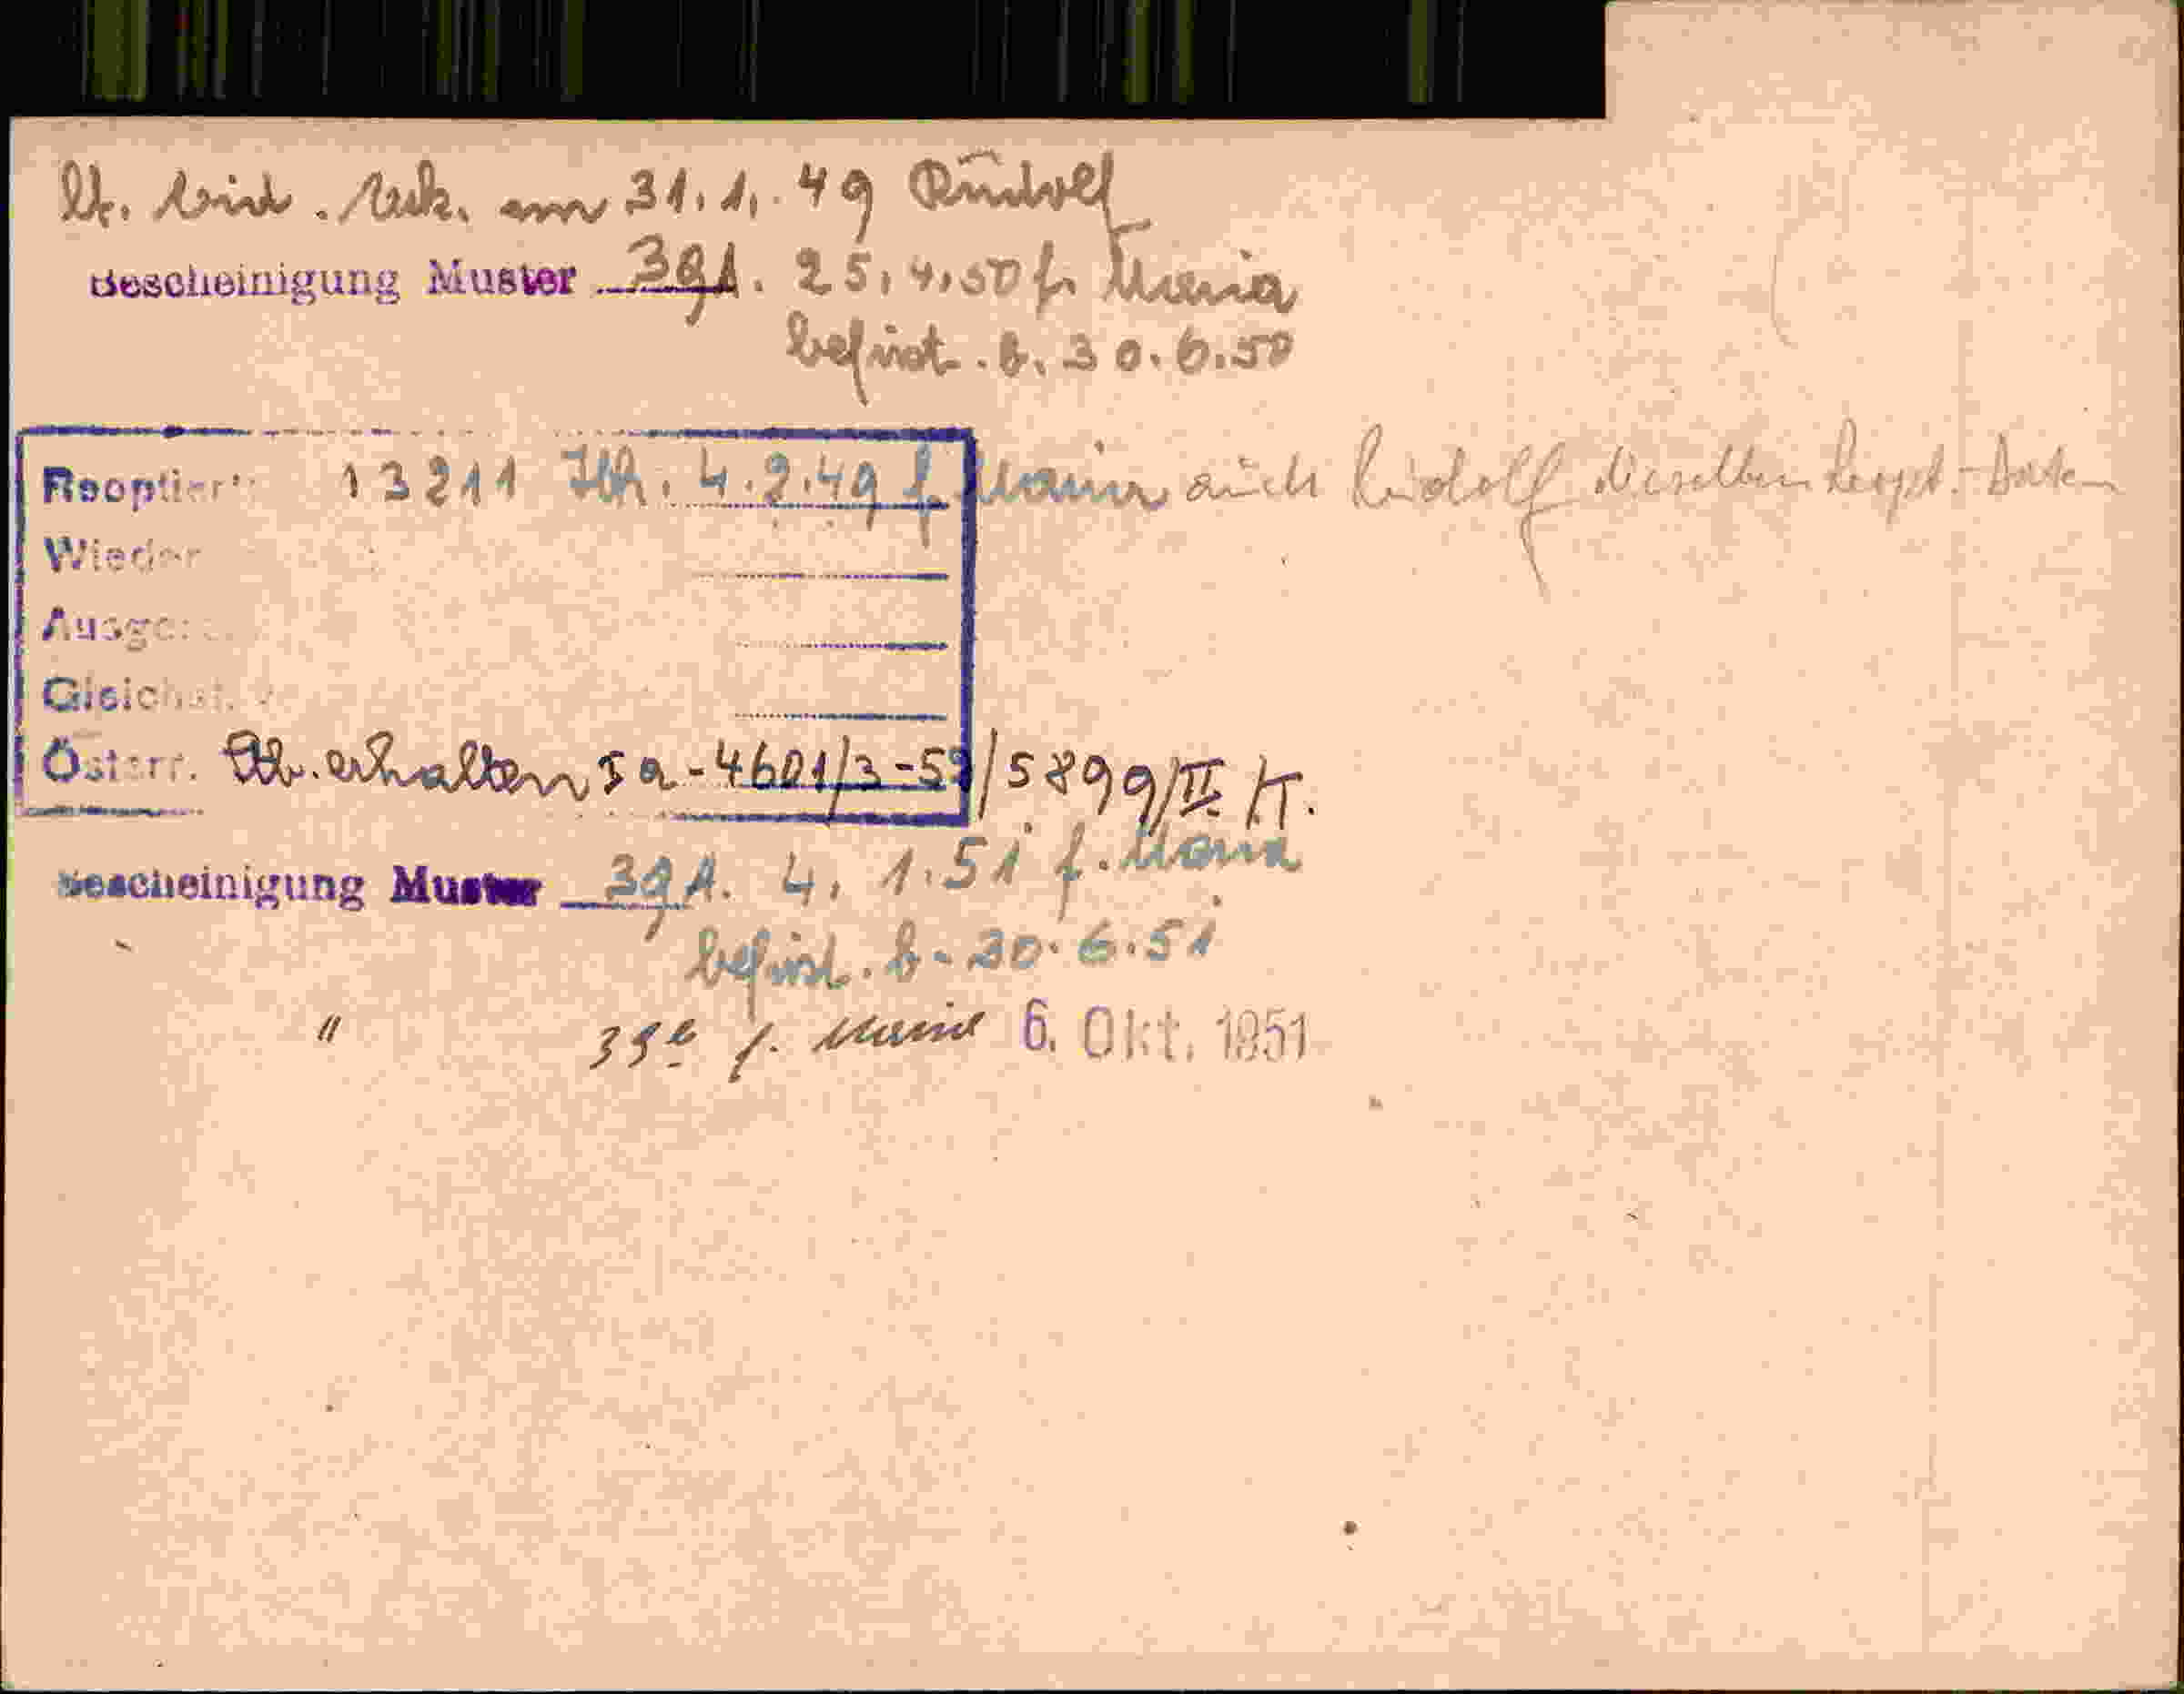 am 31.1.49 Rudolf
Bescheinigung Muster 39A. 25.4.50 f. Maria
befrist. b. 30.6.50
Reoptiert: 13211 4.2.49 f. Maria auch Rudolf dieselben Reopt.-Daten
Wieder
Ausge
Gleichst.
Österr. Stb. erhalten 5a-4601/3-5 /5899/II
Bescheinigung Muster 39A. 4.1.51 f. Maria
befrist. b. 30.6.51
" f. Maria 6. Okt. 1951